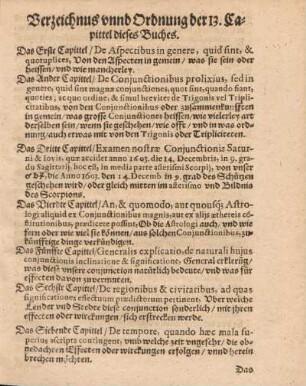 Verzeichnus vnnd Ordnung der 13. Ca-
pittel dieses Buches.
Das Erste Capittel / De Aspectibus in genere, quid sint, &
quotuplices, Von den Aspecten in gemein / was sie sein oder
heissen / vnd wie mancherley.
Das Ander Capittel / De Conjunctionibus prolixius, sed in
genere, quid sint magnæ conjunctiones, quot sint, quando fiant,
quoties, ac quo ordine, & simul breviter de Trigonis vel Tripli-
citatibus, von den Conjunctionibus oder zusammenkunfften in
gemein / was grosse Conjunctiones heissen / wie vielerley art
derselben sein / wenn sie geschehen / wie offt / vnd in was ord-
nung / auch etwas mit von den Trigonis oder Tripliciteten.
Das Dritte Capittel / Examen nostræ Conjunctionis Satur-
ni & Iovis, quæ accidet anno 1603. die 14. Decembris, in 9. gra-
du Sagittarij, hoc est, in media parte asterismi Scorpij, von vnser
er ☌, die Anno 1603. den 14. Decemb. in 9. grad des Schützen
geschehen wird / oder gleich mitten im asterismo vnd Bildnis
des Scorpions.
Das Vierdte Capittel / An, & quomodo, aut quousq; Astro-
logi aliquid ex Conjunctionibus magnis, aut ex alijs æthereis cō-
stitutionibus, prædicere possint, Ob die Astrologi auch / vnd wie
fern oder wie viel sie können / aus solchen Conjunctionibus, zu-
künfftige dinge verkündigen.
Das Fünffte Capittel / Generalis explicatio, de naturali hujus
conjunctionis inclinatione & significatione, General erklerūg /
was diese vnsere conjunction natürlich bedeute / vnd was für
effecten davon zuvermuten.
Das Sechste Capittel / De regionibus & civitatibus, ad quas
significationes effectuum prædictorum pertinent. Vber welche
Lender vnd Stedte diese conjunction sonderlich / mit jhren
effecten oder wirckungen / sich erstrecken werde.
Das Siebende Capittel / De tempore, quando hæc mala su-
perius scripta contingent, vmb welche zeit vngefehr / die ob-
nedachten Effecten oder wirckungen erfolgen / vnnd herein
brechen möchten.
Das